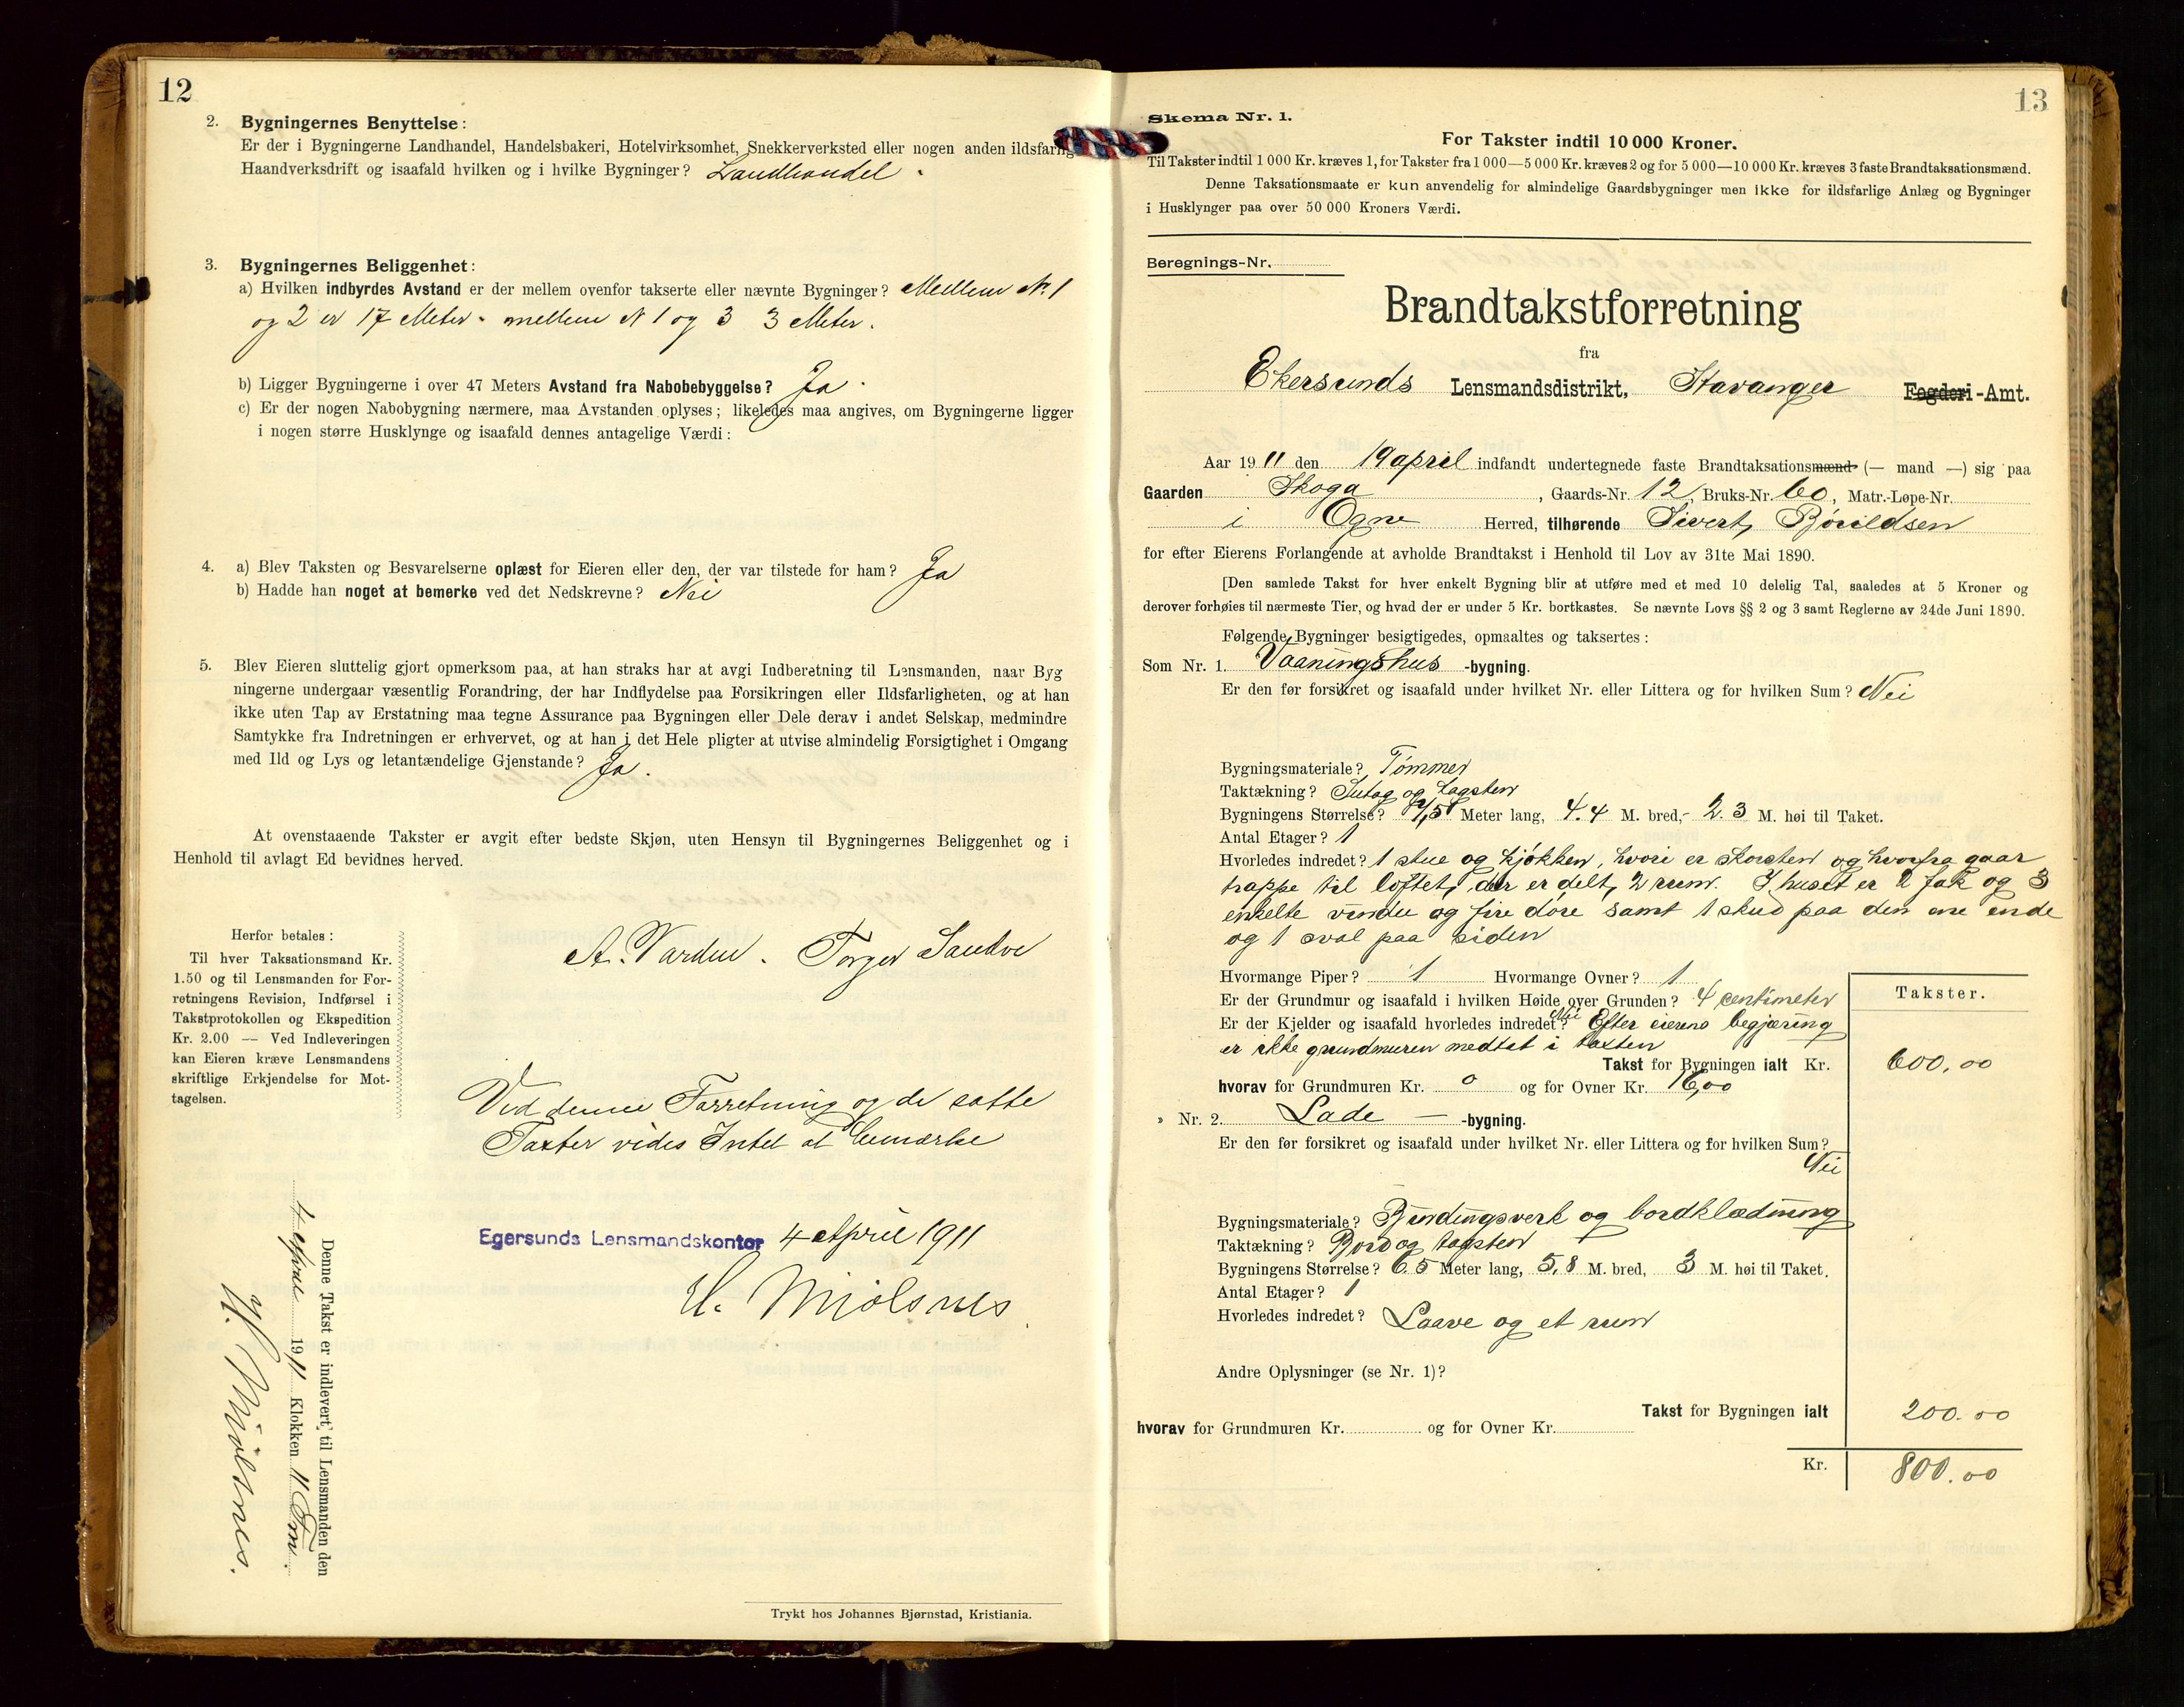 12
2. Bygningernes Benyttelse:
Er der i Bygningerne Landhandel, Handelsbakeri, Hotelvirksomhet, Snekkerverksted eller nogen anden ildsfarlig
Haandverksdrift og isaafald hvilken og i hvilke Bygninger? Landhandel.
3. Bygningernes Beliggenhet:
a) Hvilken indbyrdes Avstand er der mellem ovenfor takserte eller nævnte Bygninger? Mellem No. 1
og 2 er 17 Meter. mellem N 1 og 3 3 Meter.
b) Ligger Bygningerne i over 47 Meters Avstand fra Nabobebyggelse? Ja.
c) Er der nogen Nabobygning nærmere, maa Avstanden oplyses; likeledes maa angives, om Bygningerne ligger
i nogen større Husklynge og isaafald dennes antagelige Værdi:
4. a) Blev Taksten og Besvarelserne oplæst for Eieren eller den, der var tilstede for ham? Ja
b) Hadde han noget at bemerke ved det Nedskrevne? Nei
5. Blev Eieren sluttelig gjort opmerksom paa, at han straks har at avgi Indberetning til Lensmanden, naar Byg
ningerne undergaar væsentlig Forandring, der har Indflydelse paa Forsikringen eller Ildsfarligheten, og at han
ikke uten Tap av Erstatning maa tegne Assurance paa Bygningen eller Dele derav i andet Selskap, medmindre
Samtykke fra Indretningen er erhvervet, og at han i det Hele pligter at utvise almindelig Forsigtighet i Omgang
med Ild og Lys og letantændelige Gjenstande? Ja.
At ovenstaaende Takster er avgit efter bedste Skjøn, uten Hensyn til Bygningernes Beliggenhet og i
Henhold til avlagt Ed bevidnes herved.
A. Varden. Torger Sandve
Herfor betales:
Til hver Taksationsmand Kr.
1.50 og til Lensmanden for For-
retningens Revision, Indførsel i
Takstprotokollen og Ekspedition
Kr. 2.00 — Ved Indleveringen
kan Eieren kræve Lensmandens
skriftlige Erkjendelse for Mot-
tagelsen.
Ved denne Forretning og de satte
Taxter vides Intet at bemærke
Egersunds Lensmandskontor 4 April 1911
H. Mjølsnes
Denne Takst er indlevert til Lensmanden den
4 April 1911 Klokken 11 Fm.
H. Mjølsnes.
Trykt hos Johannes Bjørnstad, Kristiania.
13
Skema Nr. 1.
For Takster indtil 10 000 Kroner.
Til Takster indtil 1 000 Kr. kræves 1, for Takster fra 1 000—5 000 Kr. kræves 2 og for 5 000—10 000 Kr. kræves 3 faste Brandtaksationsmænd.
Denne Taksationsmaate er kun anvendelig for almindelige Gaardsbygninger men ikke for ildsfarlige Anlæg og Bygninger
i Husklynger paa over 50 000 Kroners Værdi.
Beregnings-Nr.
Brandtakstforretning
fra
Ekersunds Lensmandsdistrikt, Stavanger Fogderi-Amt.
Aar 1911 den 19 april indfandt undertegnede faste Brandtaksationsmænd (— mand —) sig paa
Gaarden Skoga, Gaards-Nr. 12, Bruks-Nr. 60, Matr.-Løpe-Nr.
i Ogne Herred, tilhørende Sivert
for efter Eierens Forlangende at avholde Brandtakst i Henhold til Lov av 31te Mai 1890.
[Den samlede Takst for hver enkelt Bygning blir at utføre med et med 10 delelig Tal, saaledes at 5 Kroner og
derover forhøies til nærmeste Tier, og hvad der er under 5 Kr. bortkastes. Se nævnte Lovs §§ 2 og 3 samt Reglerne av 24de Juni 1890.
Følgende Bygninger besigtigedes, opmaaltes og taksertes:
Som Nr. 1. Vaaningshus -bygning.
Er den før forsikret og isaafald under hvilket Nr. eller Littera og for hvilken Sum? Nei
Bygningsmateriale? Tømmer
Taktækning? Sutag og tagsten
Bygningens Størrelse? Meter lang, 4.4 M. bred, 2.3 M. høi til Taket.
Antal Etager? 1
Hvorledes indredet? 1 stue og kjøkken, hvori er skorsten og hvorfra gaar
trappe til loftet, der er delt, 2 rum. I huset er 2 fak og 3
enkelte vindu og fire døre samt 1 skud paa den ene ende
og 1 sval paa siden
Hvormange Piper? 1 Hvormange Ovner? 1
Er der Grundmur og isaafald i hvilken Høide over Grunden? 4 centimeter
Er der Kjelder og isaafald hvorledes indredet? Nei Efter eierens begjæring
er ikke grundmuren medtat i taxten
Takster.
Takst for Bygningen ialt Kr. 600,00
hvorav for Grundmuren Kr. 0 og for Ovner Kr. 16,00
» Nr. 2. Lade — -bygning.
Er den før forsikret og isaafald under hvilket Nr. eller Littera og for hvilken Sum?
Nei
Bygningsmateriale? Bindingsverk og bordklædning
Taktækning? Bord og tagsten
Bygningens Størrelse? 6 5 Meter lang, 5,8 M. bred, 3 M. høi til Taket.
Antal Etager? 1
Hvorledes indredet? Laave og et rum
Andre Oplysninger (se Nr. 1)?
Takst for Bygningen ialt 200.00
hvorav for Grundmuren Kr. og for Ovner Kr.
Kr. 800.00